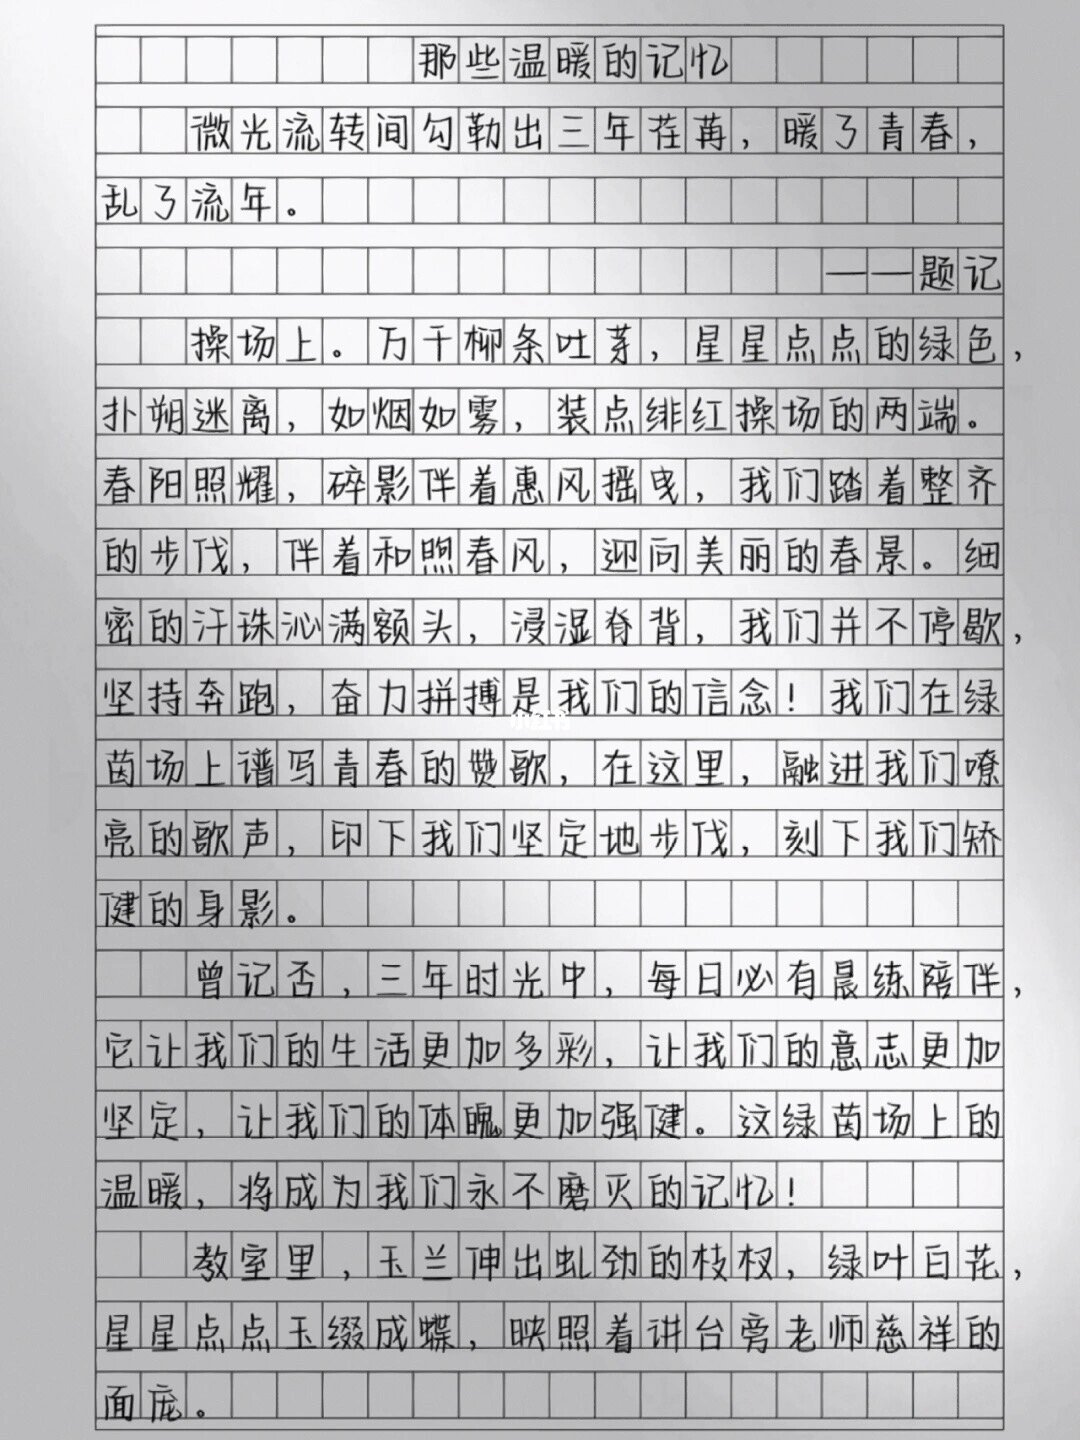 那些温暖的记忆
微光流转间勾勒出三年荏苒，暖了青春，
乱了流年。
——题记
操场上。万千柳条吐芽，星星点点的绿色，
扑朔迷离，如烟如雾，装点绯红操场的两端。
春阳照耀，碎影伴着惠风摇曳，我们踏着整齐
的步伐，伴着和煦春风，迎向美丽的春景。细
密的汗珠沁满额头，浸湿脊背，我们并不停歇，
坚持奔跑，奋力拼搏是我们的信念！我们在绿
茵场上谱写青春的赞歌，在这里，融进我们嘹
亮的歌声，印下我们坚定地步伐，刻下我们矫
健的身影。
曾记否，三年时光中，每日必有晨练陪伴，
它让我们的生活更加多彩，让我们的意志更加
坚定，让我们的体魄更加强健。这绿茵场上的
温暖，将成为我们永不磨灭的记忆！
教室里，玉兰伸出虬劲的枝杈，绿叶白花，
星星点点玉缀成蝶，映照着讲台旁老师慈祥的
面庞。
小红书